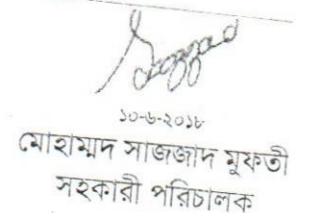 ১০-৬-২০১৮
মোহাম্মদ সাজজাদ মুফতী
সহকারী পরিচালক